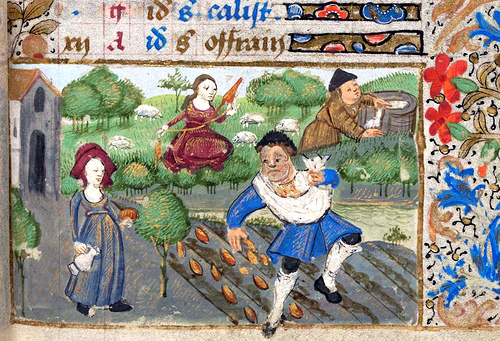 g id s. calist.
xij A id s offrain